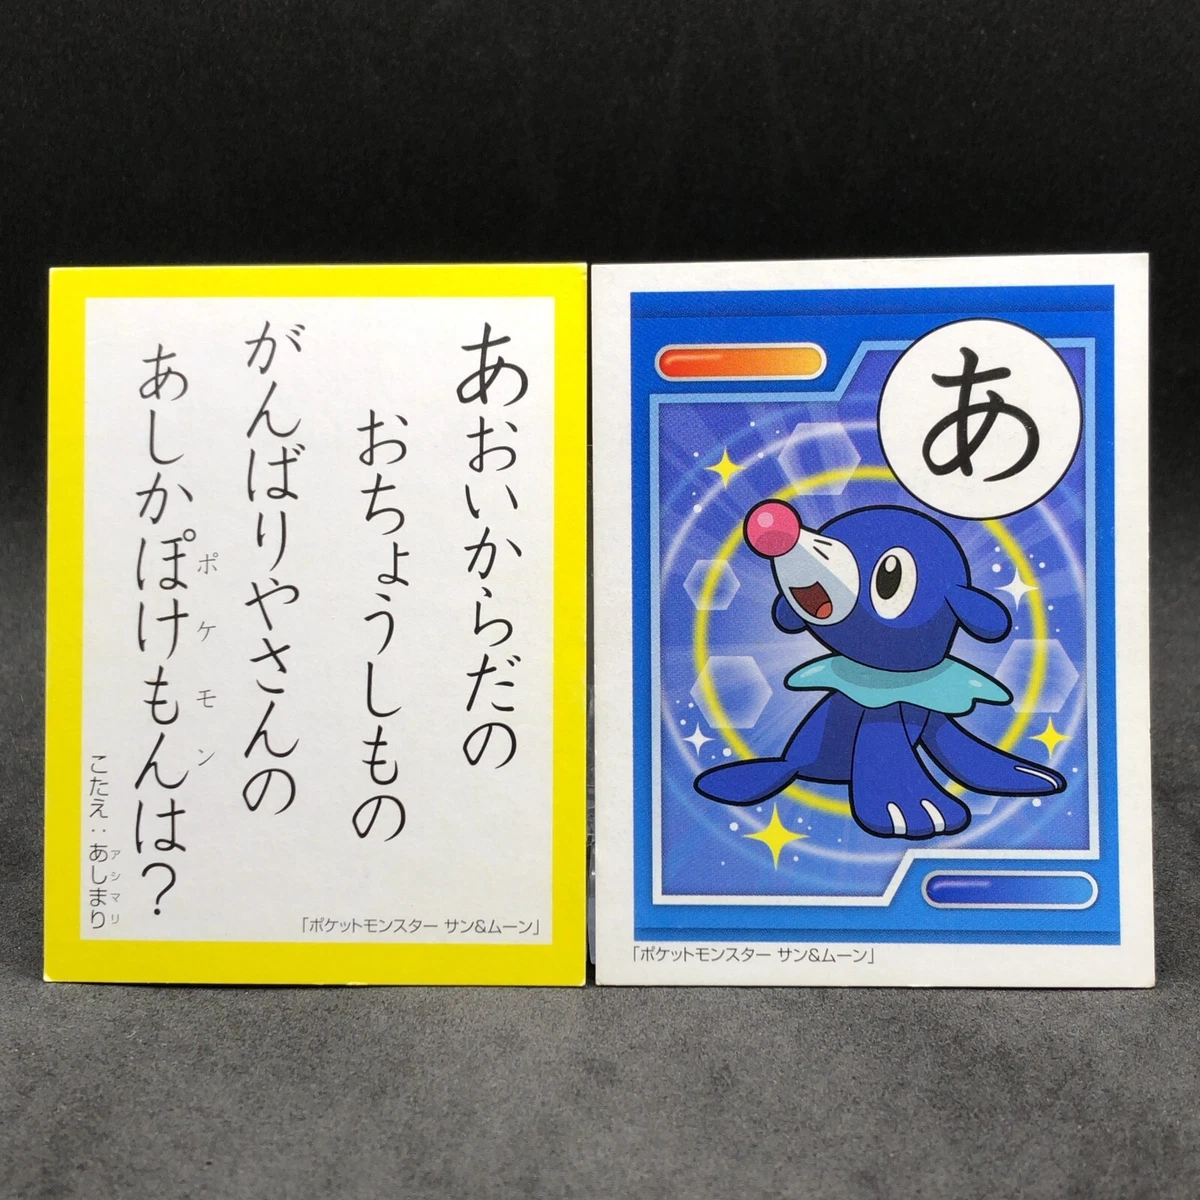 あおいからだの
おちょうしもの
がんばりやさんの
あしかぽけもんは？
ポケモン
こたえ：あしまり
アシマリ
「ポケットモンスター サン&ムーン」
あ
「ポケットモンスター サン&ムーン」